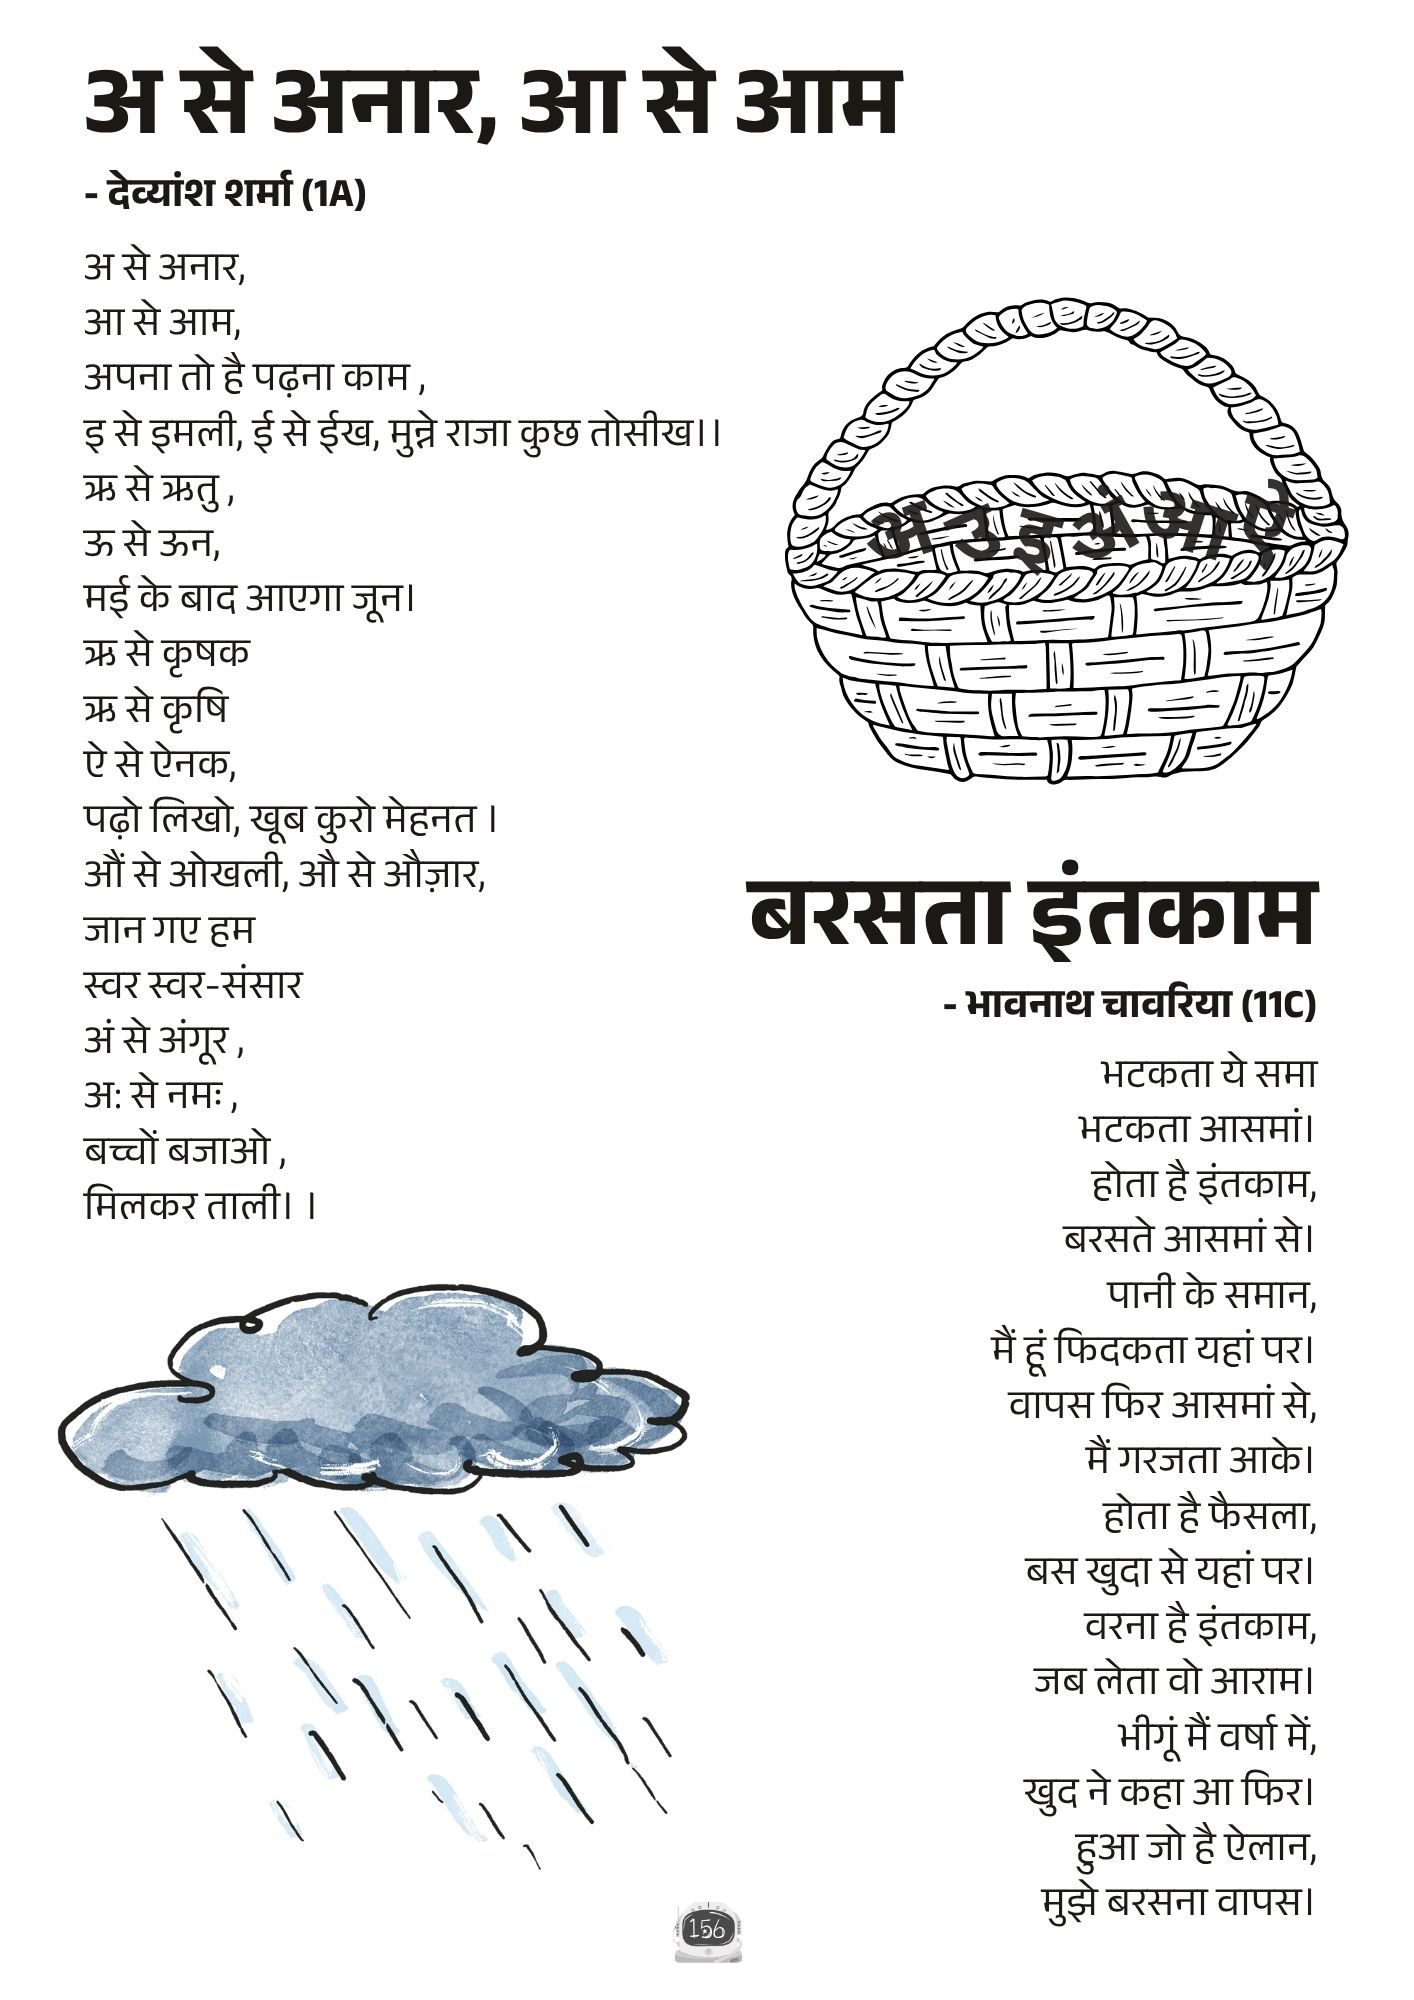 अ से अनार, आ से आम
- देव्यांश शर्मा (1A)
अ से अनार,
आ से आम,
अपना तो है पढ़ना काम ,
इ से इमली, ई से ईख, मुन्ने राजा कुछ तोसीख।।
ऋ से ऋतु ,
ऊ से ऊन,
मई के बाद आएगा जून।
ऋ से कृषक
ऋ से कृषि
ऐ से ऐनक,
पढ़ो लिखो, खूब कुरो मेहनत ।
औं से ओखली, औ से औज़ार,
जान गए हम
स्वर स्वर-संसार
अं से अंगूर ,
अ: से नमः ,
बच्चों बजाओ ,
मिलकर ताली। ।
अ उ इ अं आ ऐ
बरसता इंतकाम
- भावनाथ चावरिया (11C)
भटकता ये समा
भटकता आसमां।
होता है इंतकाम,
बरसते आसमां से।
पानी के समान,
मैं हूं फिदकता यहां पर।
वापस फिर आसमां से,
मैं गरजता आके।
होता है फैसला,
बस खुदा से यहां पर।
वरना है इंतकाम,
जब लेता वो आराम।
भीगूं मैं वर्षा में,
खुद ने कहा आ फिर।
हुआ जो है ऐलान,
मुझे बरसना वापस।
156